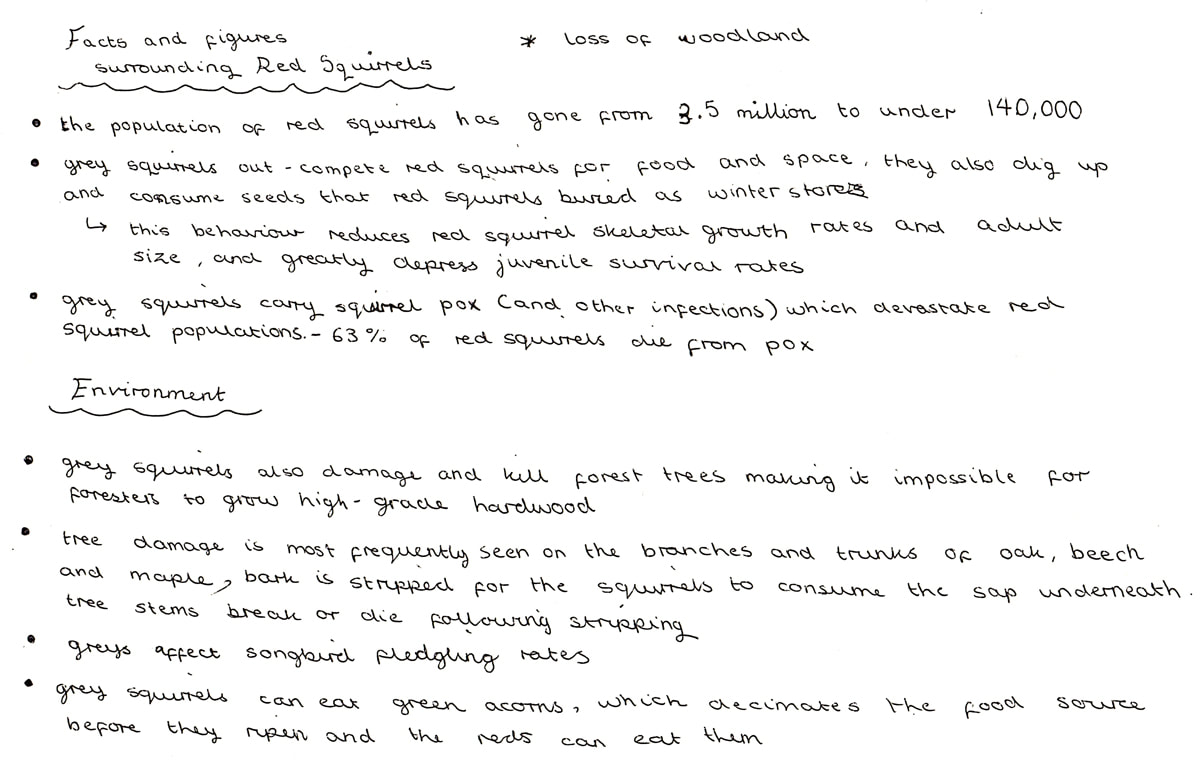 Facts and figures
surrounding Red Squirrels
* loss of woodland
• the population of red squirrels has gone from 3.5 million to under 140,000
• grey squirrels out-compete red squirrels for food and space, they also dig up
and consume seeds that red squirrels buried as winter stores
↳ this behaviour reduces red squirrel skeletal growth rates and adult
size, and greatly depress juvenile survival rates
• grey squirrels carry squirrel pox (and other infections) which devastate red
squirrel populations. - 63% of red squirrels die from pox
Environment
• grey squirrels also damage and kill forest trees making it impossible for
foresters to grow high-grade hardwood
• tree damage is most frequently seen on the branches and trunks of oak, beech
and maple, bark is stripped for the squirrels to consume the sap underneath.
tree stems break or die following stripping
• greys affect songbird fledgling rates
• grey squirrels can eat green acorns, which decimates the food source
before they ripen and the reds can eat them